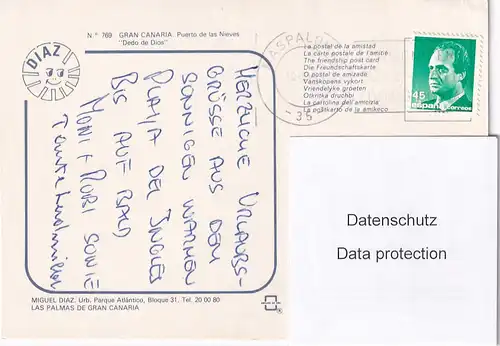 N.° 769 GRAN CANARIA. Puerto de las Nieves
"Dedo de Dios"
DIAZ
HERZLICHE URLAUBS-
GRÜSSE AUS DEM
SONNIGEN WARMEN
PLAYA DEL INGLES
BIS AUF BALD
MONI + RUBI SOWIE
Tante
MIGUEL DIAZ, Urb. Parque Atlántico, Bloque 31. Tel. 20 00 80
LAS PALMAS DE GRAN CANARIA
ASPALO
-35
La postal de la amistad
La carte postale de l'amitié
The friendship post card
Die Freundschaftskarte
O postal de amizade
Vänskapens vykort
Vriendelyke groeten
Otkritka druchbi
La cartolina dell'amicizia
La poŝtkarto de la amikeco
45
españa correos
Datenschutz
Data protection